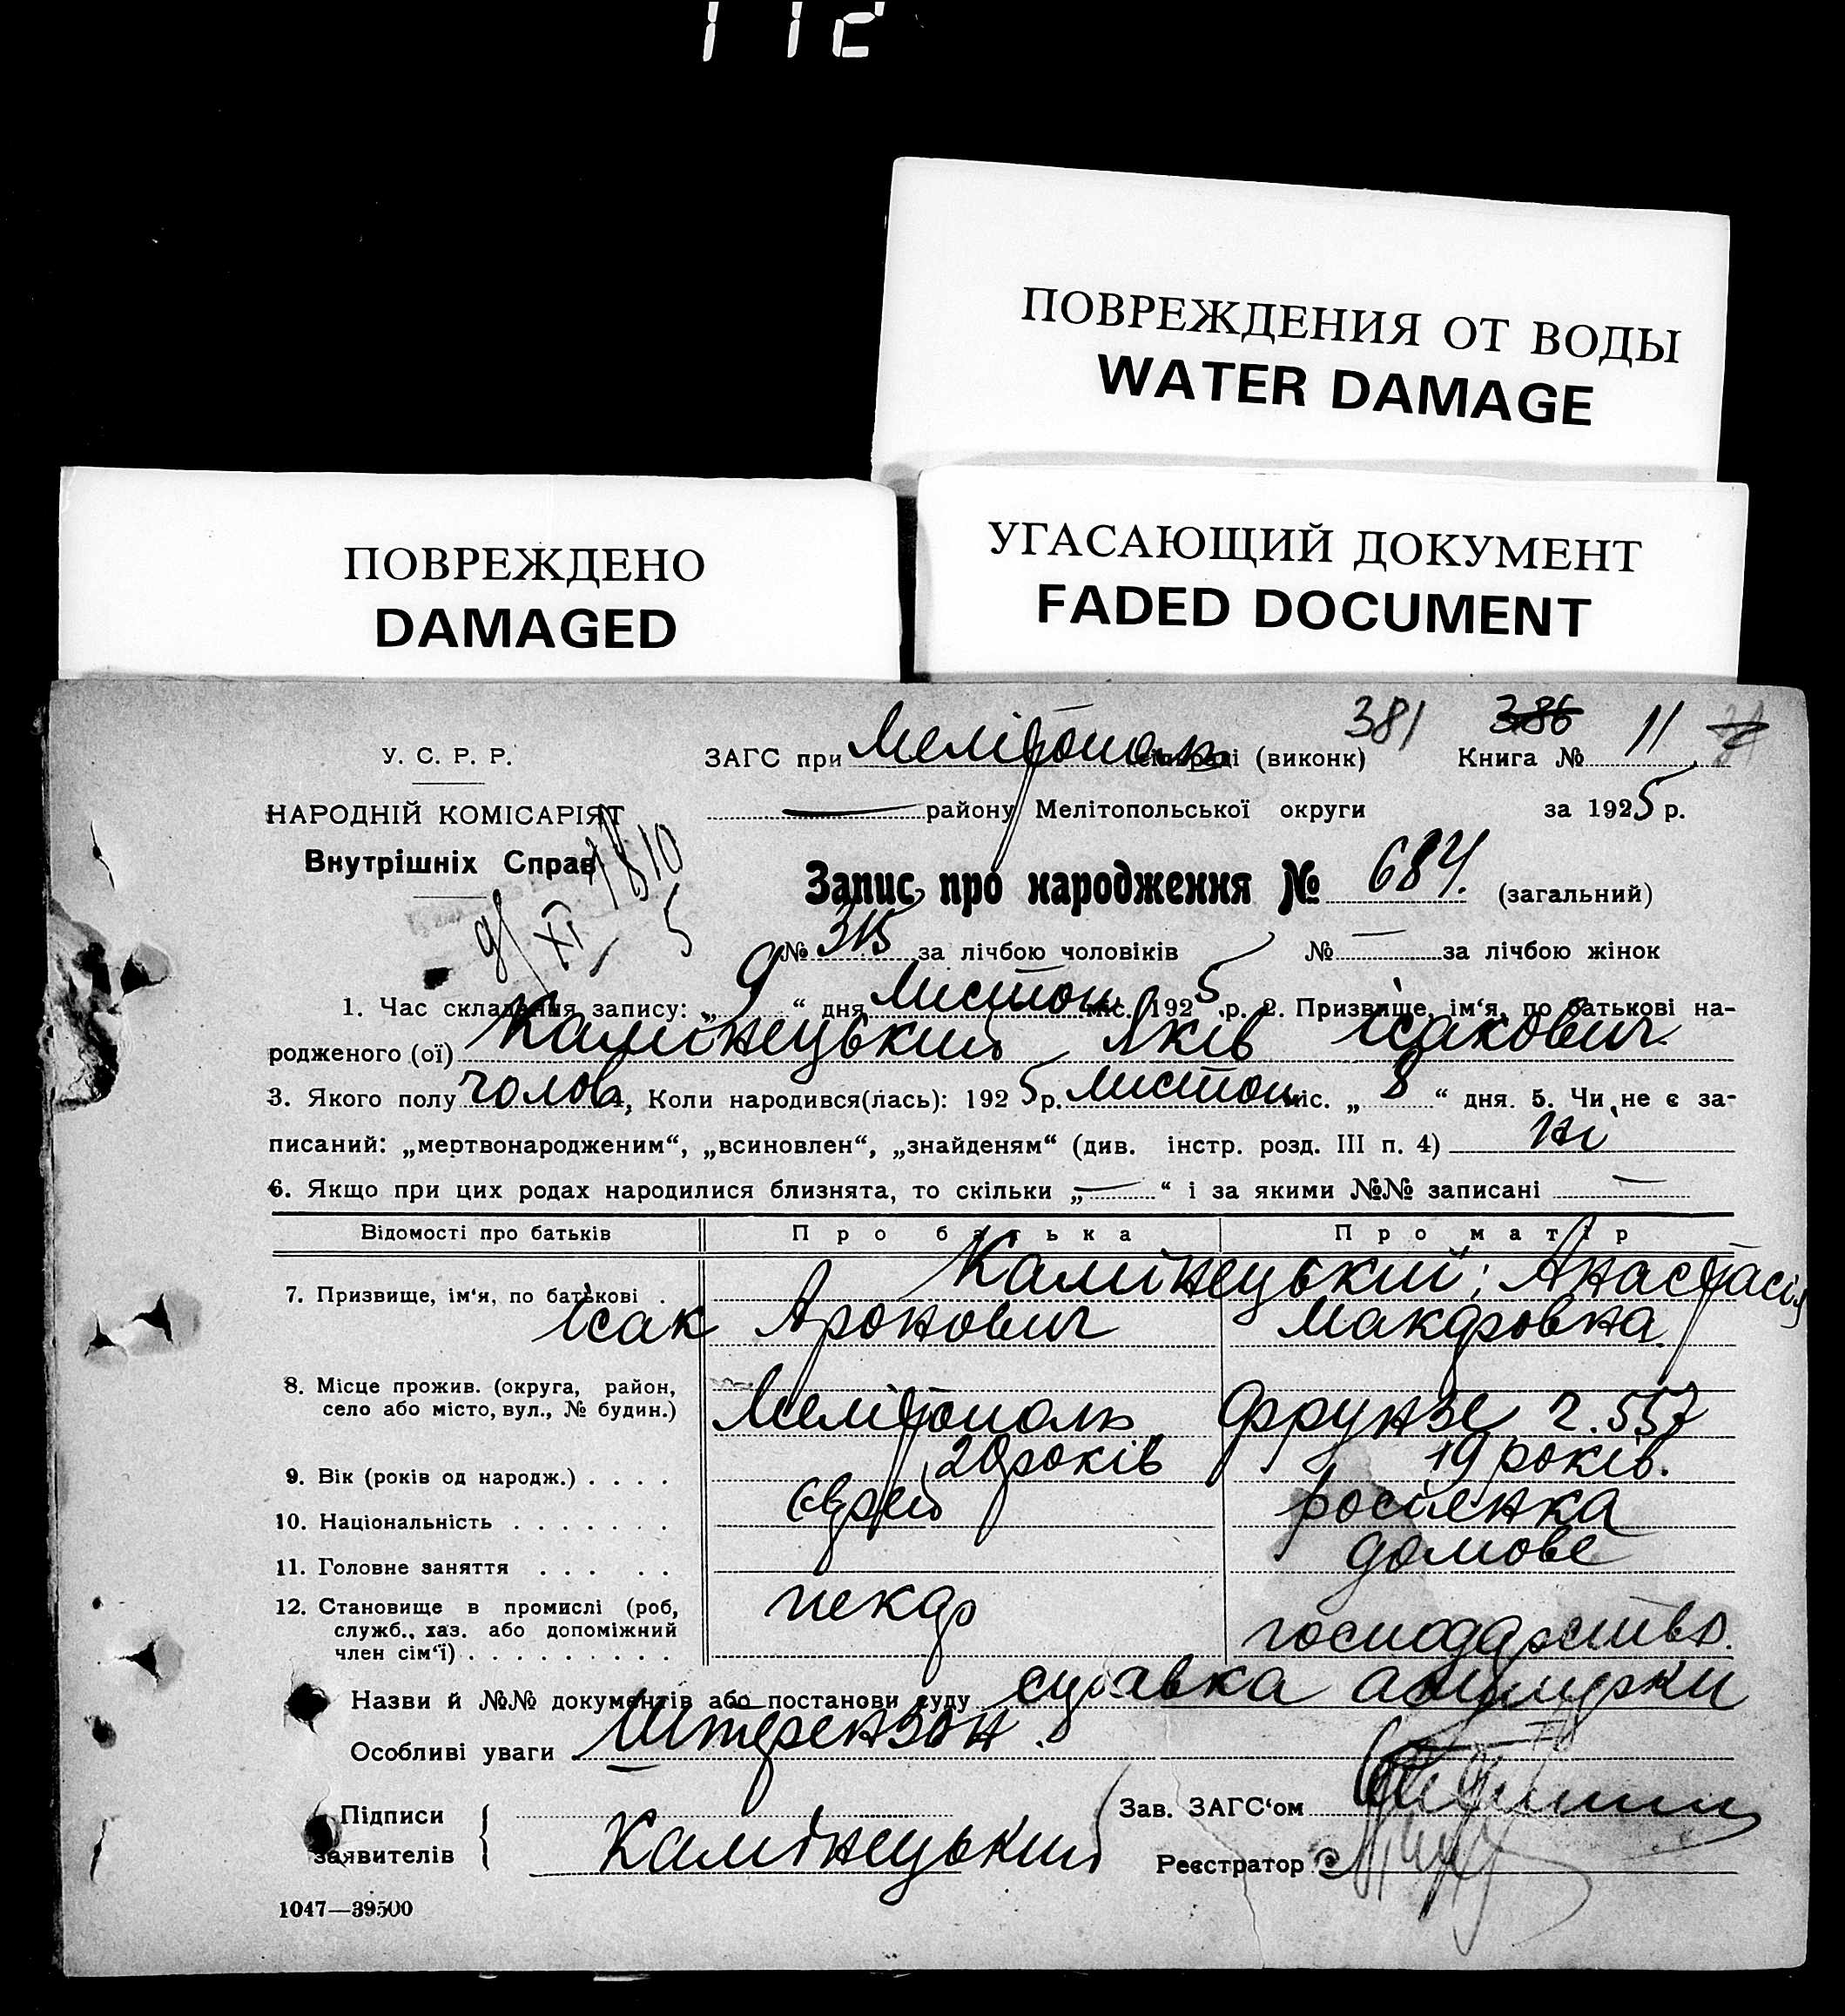 112
ПОВРЕЖДЕНИЯ ОТ ВОДЫ
WATER DAMAGE
ПОВРЕЖДЕНО
DAMAGED
УГАСАЮЩИЙ ДОКУМЕНТ
FADED DOCUMENT
381 386
У. С. Р. Р. ЗАГС при Мелітополь сільраді (виконк) Книга № 11
НАРОДНІЙ КОМІСАРІЯТ — району Мелітопольської округи за 1925 р.
Внутрішніх Справ
1810
9/XI 5
Запис про народження № 684. (загальний)
№ 315 за лічбою чоловіків № — за лічбою жінок
1. Час складення запису: „9“ дня Листоп міс. 1925 р. 2. Призвище, ім‘я, по батькові на-
родженого (ої) Камінецький Яків Ісакович
3. Якого полу чолов 4, Коли народився(лась): 1925 р. Листоп міс. „8“ дня. 5. Чи не є за-
писаний: „мертвонародженим“, „всиновлен“, „знайденям“ (див. інстр. розд. III п. 4) ні
6. Якщо при цих родах народилися близнята, то скільки „—“ і за якими №№ записані —
Відомості про батьків Про батька Про матір
7. Призвище, ім‘я, по батькові . Камінецький: Анастасія
Ісак Аронович Макаровна
8. Місце прожив. (округа, район,
село або місто, вул., № будин.) Мелітополь Фрунзе 2. 557
9. Вік (років од народж.) . . . . 20 років 19 років.
10. Національність . . . . . . . Єврей росіянка
11. Головне заняття . . . . . домове
12. Становище в промислі (роб,
служб., хаз. або допоміжний
член сім‘ї) . . . . . . . . . пекар господарство.
Назви й №№ документів або постанови суду справка акушерки
Особливі уваги Штерензон.
Підписи
заявителів Камінецький
Зав. ЗАГС‘ом
Реєстратор
1047—39500